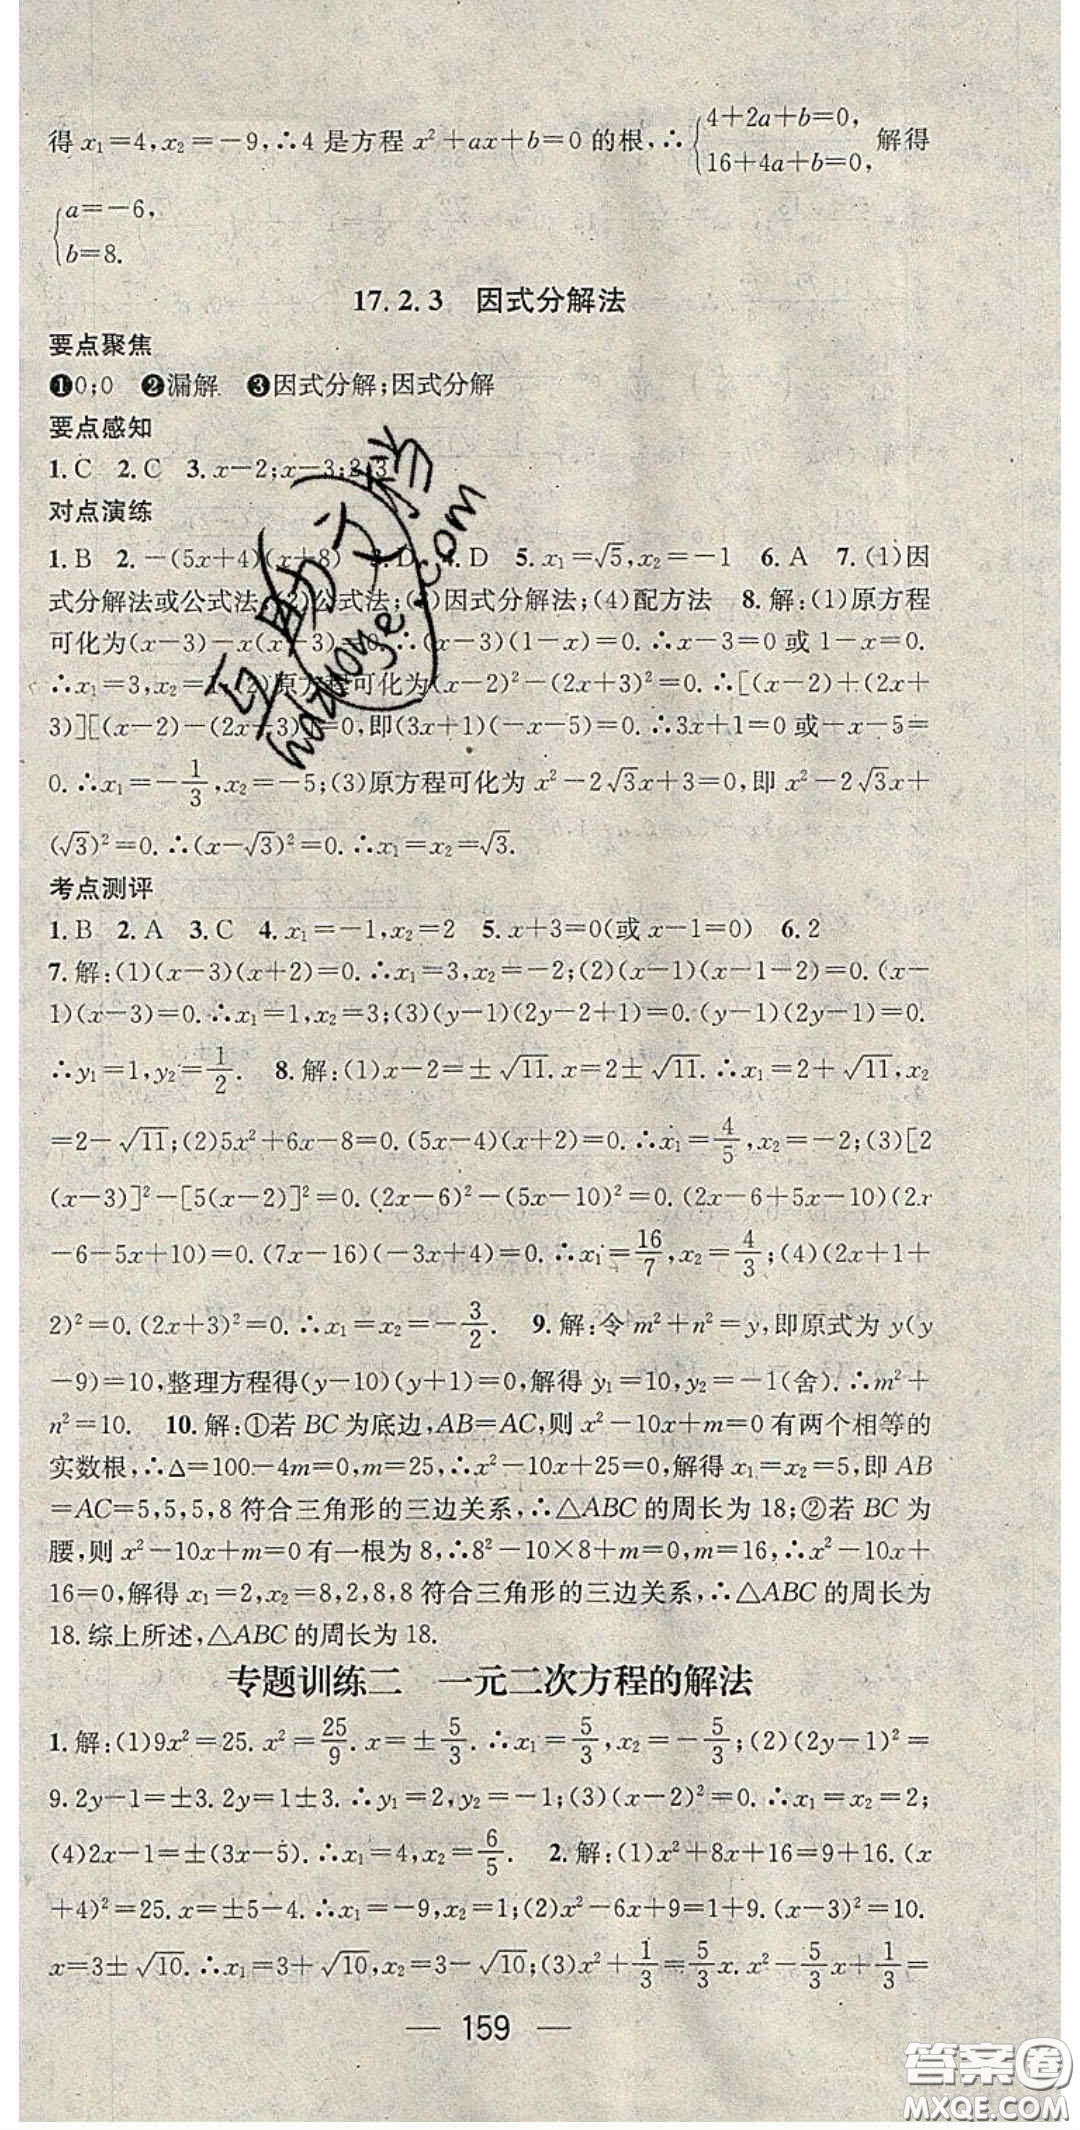 得 x₁=4,x₂=-9,∴4 是方程 x²+ax+b=0 的根,∴ {4+2a+b=0, 16+4a+b=0, 解得
{a=-6, b=8.
17.2.3 因式分解法
要点聚焦
❶0;0 ❷漏解 ❸因式分解;因式分解
要点感知
1.C 2.C 3.x-2;x-3;2;3
对点演练
1.B 2.-(5x+4)(x+8) 3.D 4.D 5.x₁=√5,x₂=-1 6.A 7.(1)因
式分解法或公式法;(2)公式法;(3)因式分解法;(4)配方法 8.解:(1)原方程
可化为(x-3)-x(x-3)=0.∴(x-3)(1-x)=0.∴x-3=0 或 1-x=0.
∴x₁=3,x₂=1;(2)原方程可化为(x-2)²-(2x+3)²=0.∴[(x-2)+(2x+
3)][(x-2)-(2x+3)]=0,即(3x+1)(-x-5)=0.∴3x+1=0 或-x-5=
0.∴x₁=-1/3,x₂=-5;(3)原方程可化为 x²-2√3x+3=0,即 x²-2√3x+
(√3)²=0.∴(x-√3)²=0.∴x₁=x₂=√3.
考点测评
1.B 2.A 3.C 4.x₁=-1,x₂=2 5.x+3=0(或 x-1=0) 6.2
7.解:(1)(x-3)(x+2)=0.∴x₁=3,x₂=-2;(2)(x-1)(x-1-2)=0.(x-
1)(x-3)=0.∴x₁=1,x₂=3;(3)(y-1)(2y-2+1)=0.(y-1)(2y-1)=0.
∴y₁=1,y₂=1/2. 8.解:(1)x-2=±√11.x=2±√11.∴x₁=2+√11,x₂
=2-√11;(2)5x²+6x-8=0.(5x-4)(x+2)=0.∴x₁=4/5,x₂=-2;(3)[2
(x-3)]²-[5(x-2)]²=0.(2x-6)²-(5x-10)²=0.(2x-6+5x-10)(2x
-6-5x+10)=0.(7x-16)(-3x+4)=0.∴x₁=16/7,x₂=4/3;(4)(2x+1+
2)²=0.(2x+3)²=0.∴x₁=x₂=-3/2. 9.解:令 m²+n²=y,即原式为 y(y
-9)=10,整理方程得(y-10)(y+1)=0,解得 y₁=10,y₂=-1(舍).∴m²+
n²=10. 10.解:①若 BC 为底边,AB=AC,则 x²-10x+m=0 有两个相等的
实数根,∴Δ=100-4m=0,m=25,∴x²-10x+25=0,解得 x₁=x₂=5,即 AB
=AC=5,5,5,8 符合三角形的三边关系,∴△ABC 的周长为 18;②若 BC 为
腰,则 x²-10x+m=0 有一根为 8,∴8²-10×8+m=0,m=16,∴x²-10x+
16=0,解得 x₁=2,x₂=8,2,8,8 符合三角形的三边关系,∴△ABC 的周长为
18.综上所述,△ABC 的周长为 18.
专题训练二 一元二次方程的解法
1.解:(1)9x²=25.x²=25/9.x=±5/3.∴x₁=5/3,x₂=-5/3;(2)(2y-1)²=
9.2y-1=±3.2y=1±3.∴y₁=2,y₂=-1;(3)(x-2)²=0.∴x₁=x₂=2;
(4)2x-1=±(3x-5).∴x₁=4,x₂=6/5. 2.解:(1)x²+8x+16=9+16.(x
+4)²=25.x=±5-4.∴x₁=-9,x₂=1;(2)x²-6x+9=1+9.(x-3)²=10.
x=3±√10.∴x₁=3+√10,x₂=3-√10;(3)x²+1/3=5/3x.x²-5/3x+1/3=
— 159 —
答案圈
MXQE.COM
互助文档
hdzuoye.com